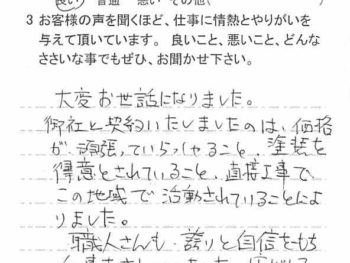 良い 普通 悪い その他(
3 お客様の声を聞くほど、仕事に情熱とやりがいを
与えて頂いています。 良いこと、悪いこと、どんな
ささいな事でもぜひ、お聞かせ下さい。
大変お世話になりました。
御社と契約いたしましたのは、価格
が、頑張っていらっしゃること、塗装を
得意とされていること、直接工事で、
この地域で活動されていることによ
りました。
職人さんも、誇りと自信をもち